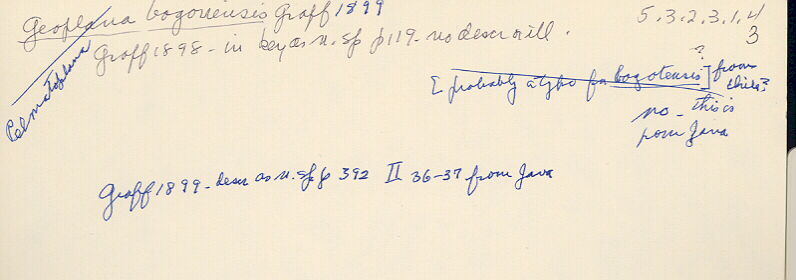 Geoplana bogoriensis Graff 1899
5.3.2.3.1.4
3
Pelmatoplana
Graff 1898 - in key as n. sp p 119 - no descr or ill.
?
[ probably a typo for bogotensis ] from
Chile?
no - this is
from Java
Graff 1899 - descr as n. sp p 392 II 36-37 from Java